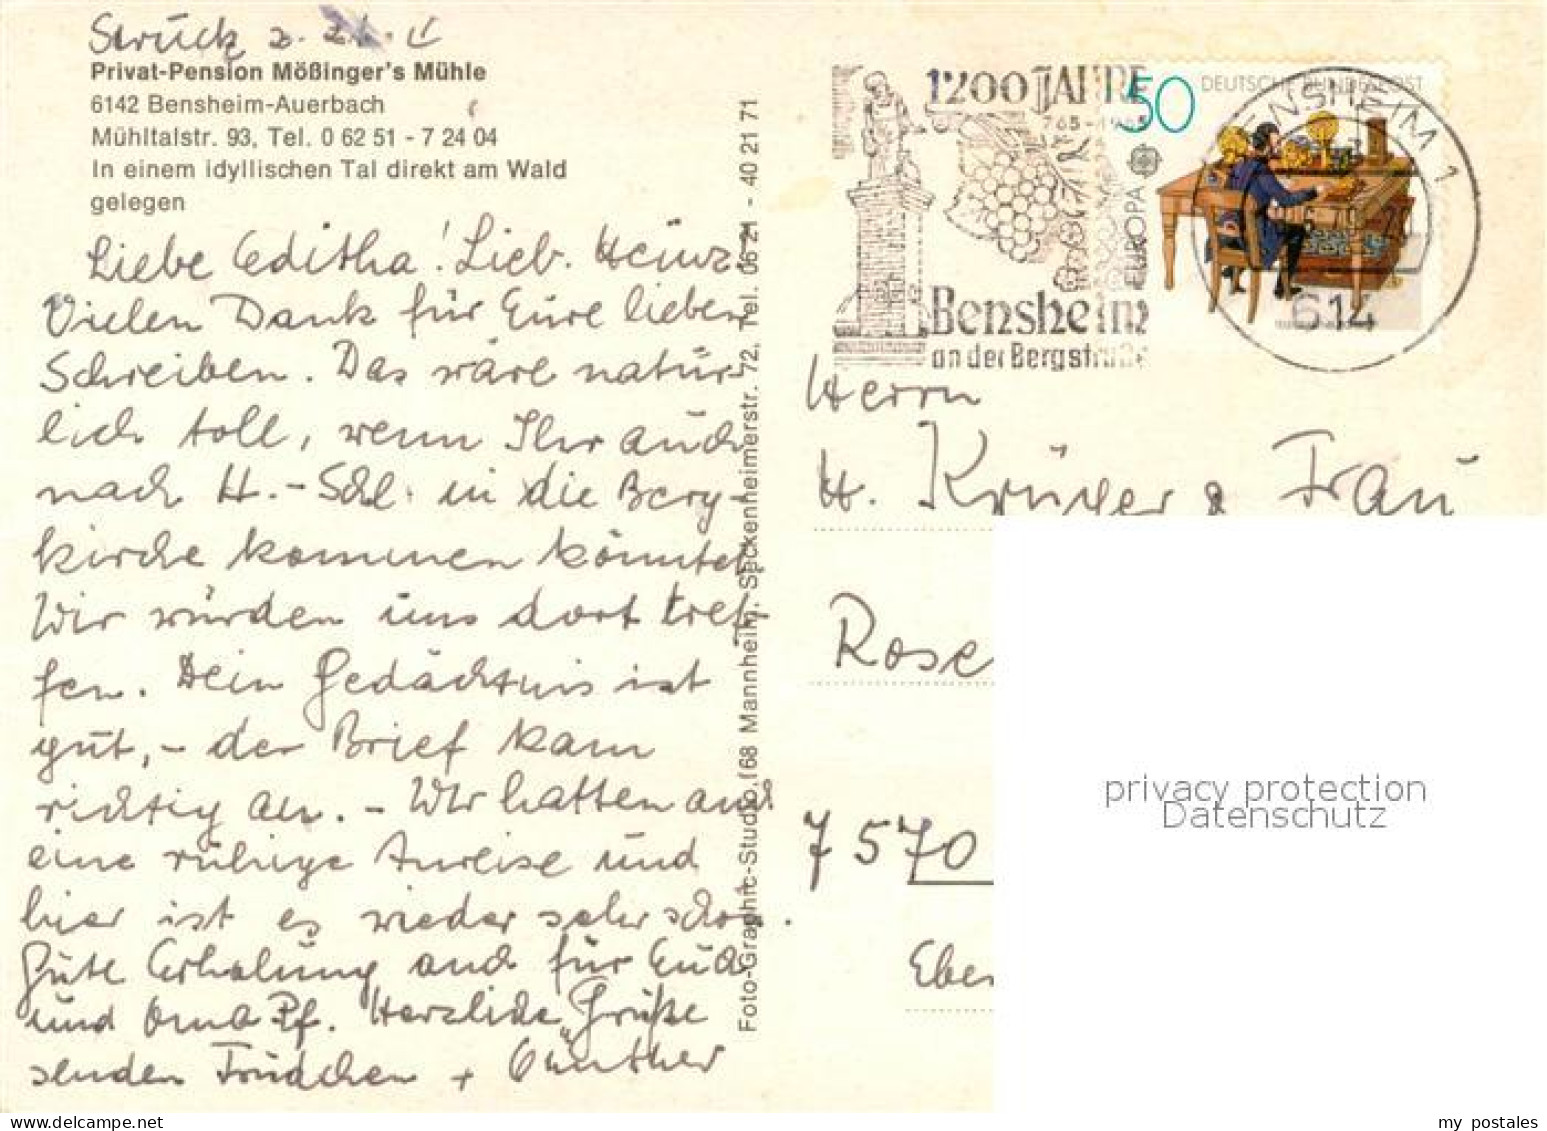 Strück z. Zt.
Privat-Pension Mößinger's Mühle
6142 Bensheim-Auerbach
Mühltalstr. 93, Tel. 0 62 51 - 7 24 04
In einem idyllischen Tal direkt am Wald
gelegen
Liebe Editha! Lieb. Heinz
Vielen Dank für Eure lieben
Schreiben. Das wäre natür-
lich toll, wenn Ihr auch
nach H.-Schl. in die Berg-
kirche kommen könntet.
Wir würden uns dort tref-
fen. Dein Gedächtnis ist
gut, - der Brief kam
richtig an. - Wir hatten auch
eine ruhige Anreise und
hier ist es wieder sehr schön.
Gute Erholung auch für Euch
und Oma Pf. Herzliche Grüße
senden Trudchen + Günther
Foto-Graphic-Studio, 168 Mannheim, Seckenheimerstr. 72, Tel. 06 21 - 40 21 71
1200 JAHRE
765-1965
Bensheim
an der Bergstraße
50
DEUTSCHE BUNDESPOST
EUROPA
BENSHEIM 1
614
Herrn
H. Krüger & Frau
Rose
7570
Eber
privacy protection
Datenschutz
my postales